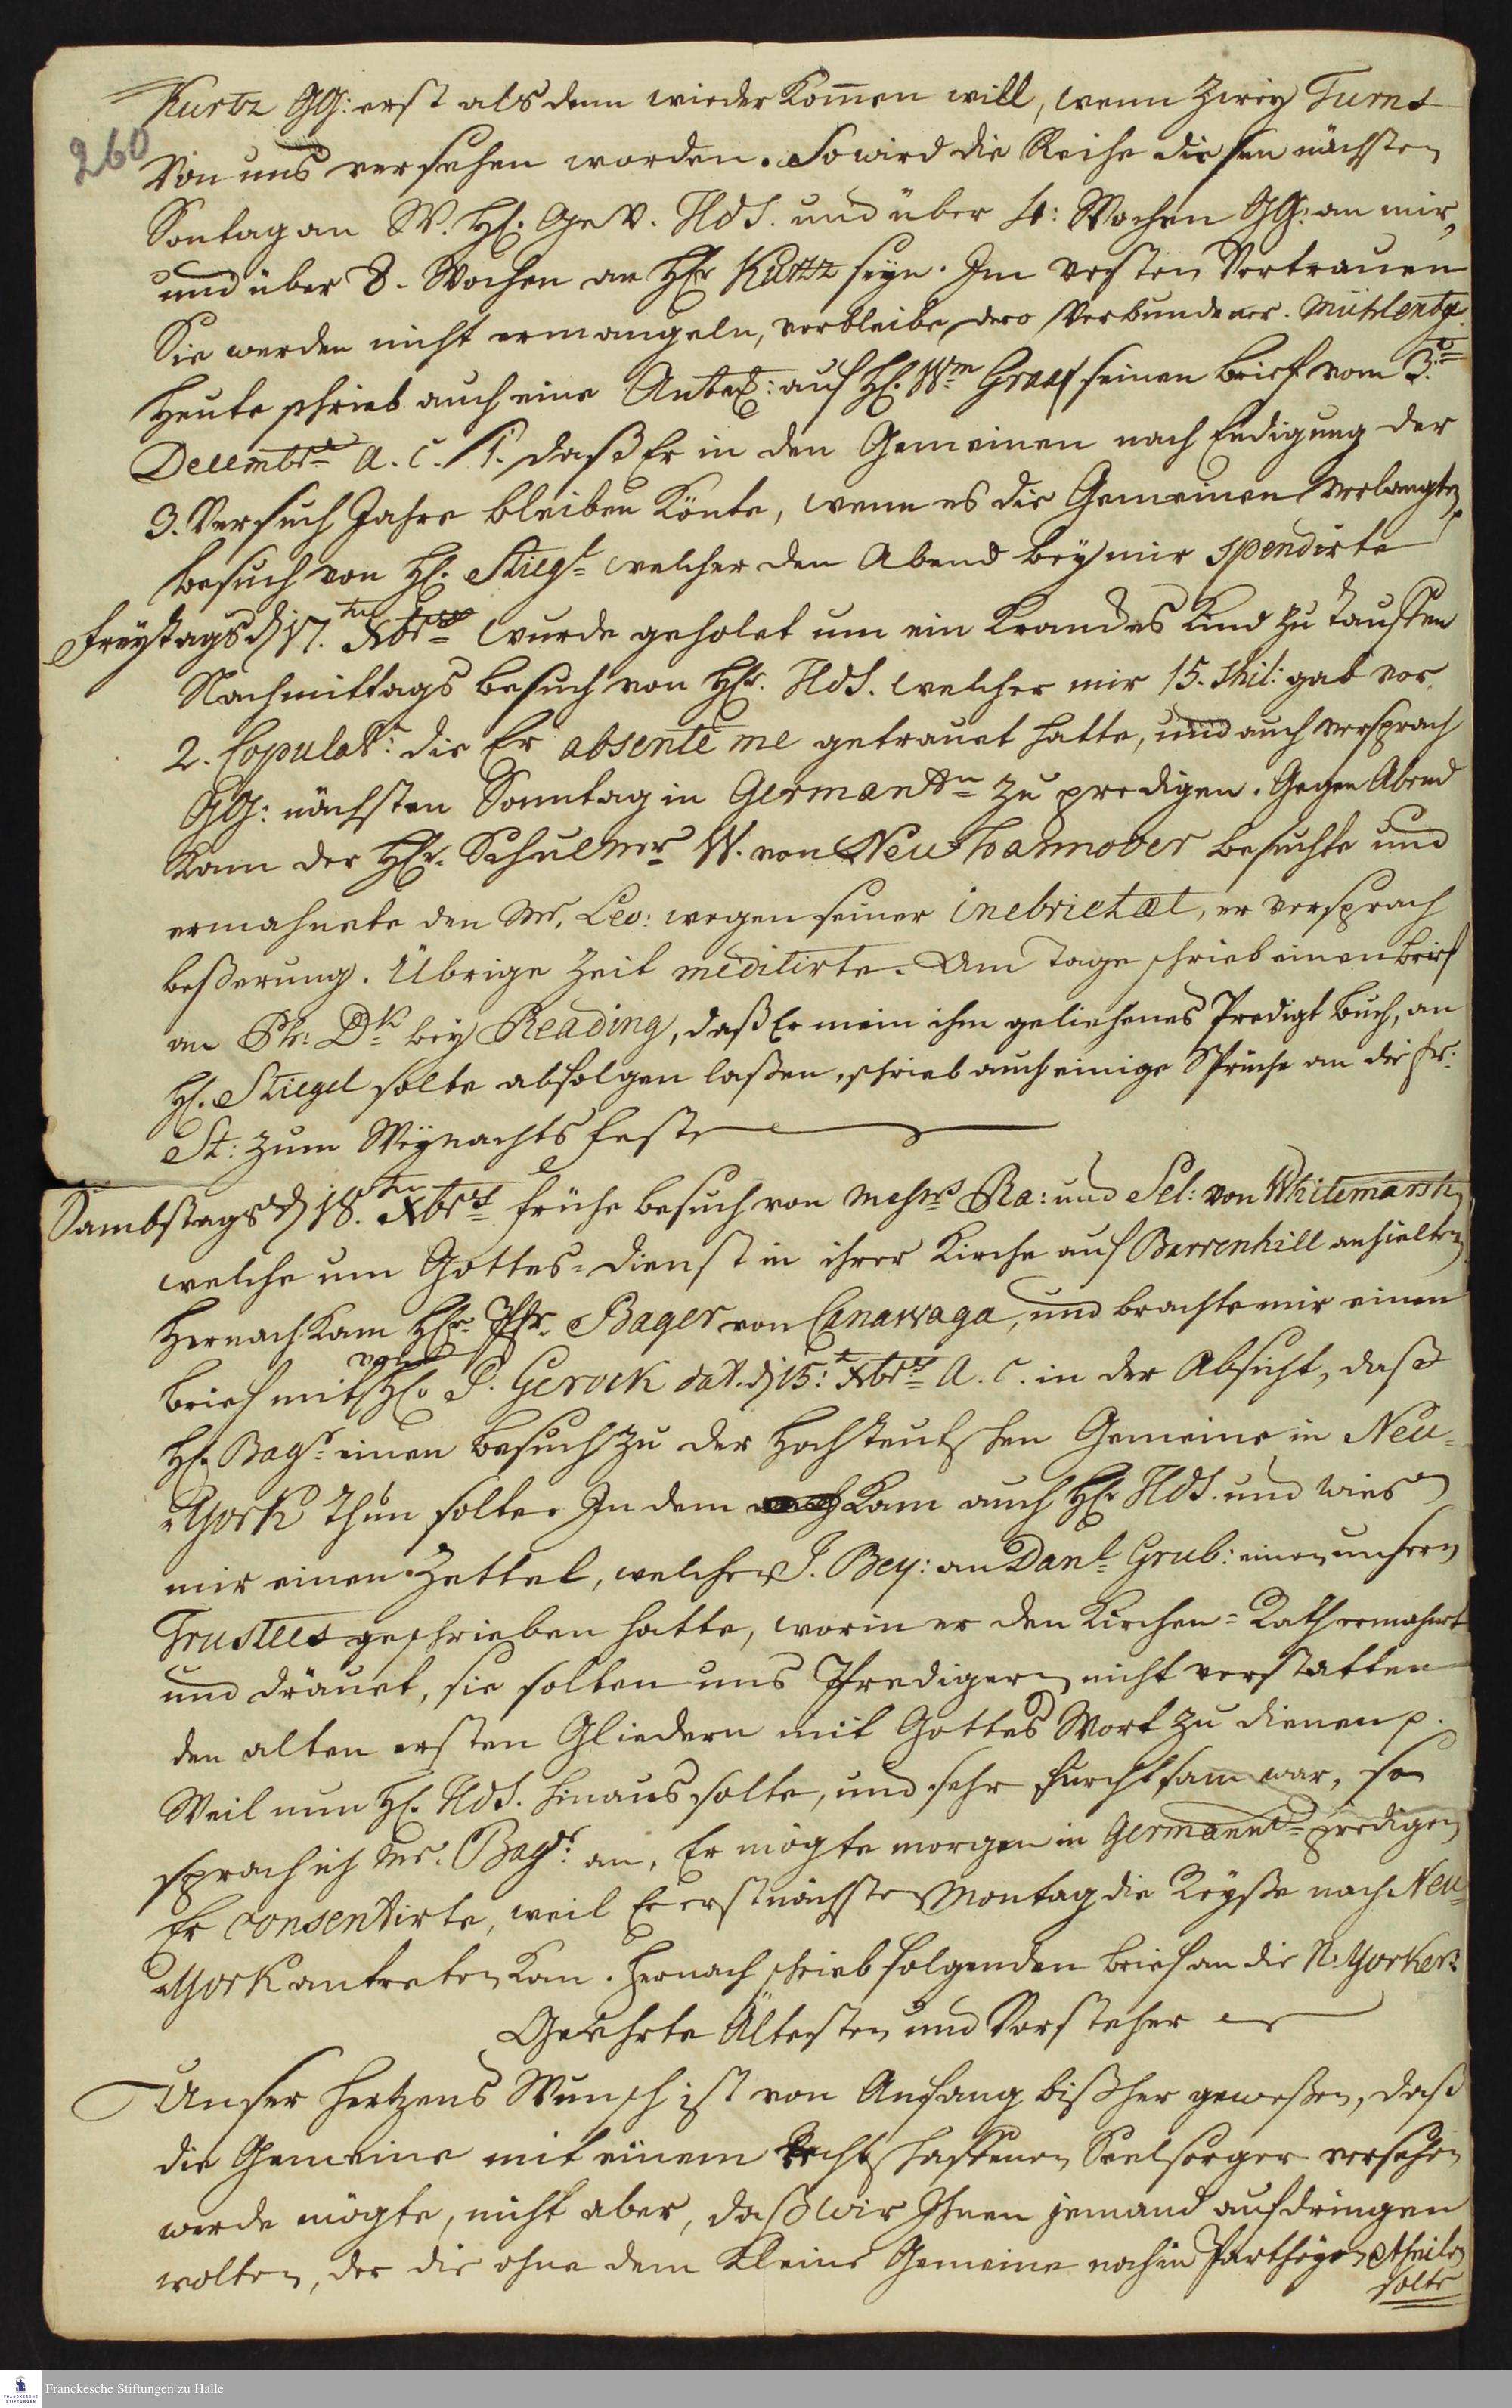 260
Kurtz GG: erst alsdenn wieder kom̄en will, wenn zwey Turns
von uns versehen worden. So wird die Reihe diesen nächsten
Sontag an W. H. Gev. Hds. und über 4: Wochen GG: an mir,
und über 8. Wochen an HEr Kurtz seyn. Im vesten Vertrauen
Sie werden nicht ermangeln, verbleibe dero Verbundener. Mühlenbg.
Heute schrieb auch eine Antw: auf H. Wm Graaf seinen Brief vom 3.t
Decembrs A. C. 1. daß Er in den Gemeinen nach Endigung der
3. Versuch Jahre bleiben könte, wenn es die Gemeinen verlangten,
Besuch von H. Stiegl welcher den Abend bey mir spendirte
Freystags d 17.ten Xbrs wurde geholet um ein kranckes Kind zu tauffen
Nachmittags Besuch von HEr. Hds. welcher mir 15. shil: gab vor
2. Copulat: die Er absente me getrauet hatte, und auch versprach
GG: nächsten Sonntag in Germantn zu predigen. Gegen Abend
kam der HEr. Schulmr W. von Neu Hannover besuchte und
ermahnete den Mr. Leo: wegen seiner inebrietæt, er versprach
beßerung. Übrige Zeit meditirte. Am Tage schrieb einen Brief
an Ph: Dk bey Reading, daß Er mein ihm geliehenes Predigt Buch, an
H. Stiegel solte abfolgen laßen, schrieb auch einige Sprüche an die Fr:
St: zum Weynachts Feste
Sambstags d 18.ten Xbrs frühe Besuch von Mehrs Ra: und Sel: von Whitemarsh
welche um Gottes-dienst in ihrer Kirche auf Barrenhill anhielten
Hernach kam HEr. Pfr. Bager von Canawaga, und brachte mir einen
Brief mit von H. P. Gerock dat. d 15.t Xbrs A. C. in der Absicht, daß
H. Bagr einen Besuch zu der Hochteutschen Gemeine in Neu-
York thun solte. In dem kam auch HEr Hds. und wies
mir einen Zettel, welchen J. Bey: an Danl Grub: einen unsern
Trustees geschrieben hatte, worin er den Kirchen-Rath ermahnet
und dräuet, sie solten uns Predigern nicht verstatten
den alten ersten Gliedern mit Gottes Wort zu dienen p.
Weil nun H. Hds. hinaus solte, und sehr furchtsam war, so
sprach ich Mr. Bagr: an, Er mögte morgen in Germantn predigen
Er consentirte, weil Er erst nächsten Montag die Reyße nach Neu-
York antreten kan. Hernach schrieb folgenden Brief an die N: Yorker:
Geehrte Ältesten und Vorsteher
Unser Hertzens Wunsch ist von Anfang bißher geweßen, daß
die Gemeine mit einem Rechtschaffenen Seelsorger versehen
werde mögte, nicht aber, daß wir Ihnen jemand aufdringen
wolten, der die ohne dem kleine Gemeine noch in Partheyen theilen
solte
Franckesche Stiftungen zu Halle